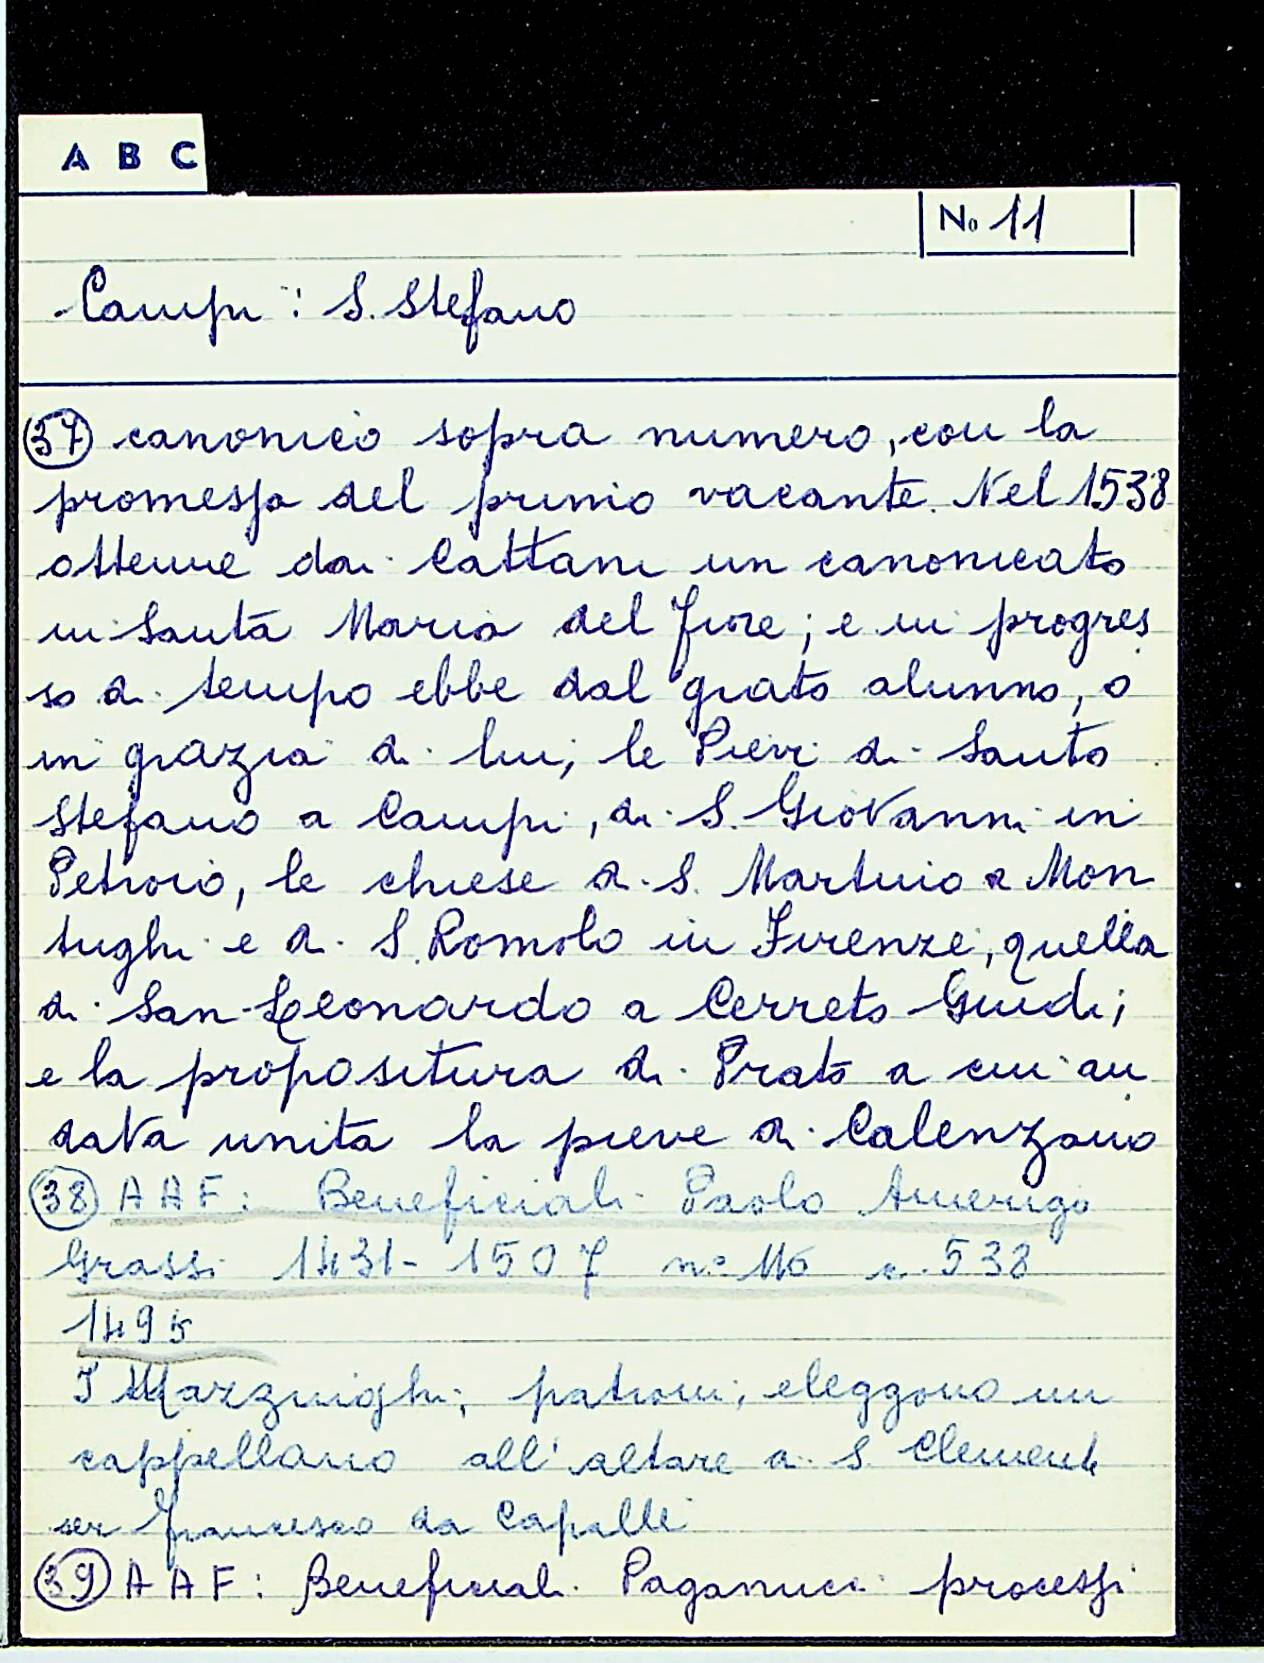 A B C
No 11
Campi: S. Stefano
37 canonico sopra numero, con la
promessa del primo vacante. Nel 1538
ottenne dai Cattani un canonicato
in Santa Maria del Fiore; e in progres
so di tempo ebbe dal grato alunno, o
in grazia di lui, le Pievi di Santo
Stefano a Campi, di S. Giovanni in
Petroio, le chiese di S. Martino a Mon
tughi e di S. Romolo in Firenze, quella
di San Leonardo a Cerreto Guidi;
e la propositura di Prato a cui an
dava unita la pieve di Calenzano
38 A A F: Beneficiali Paolo Amerigo
Grassi 1431-1507 n° 116 c. 538
1495
I Mazzinghi, patroni, eleggono un
cappellano all'altare di S. Clemente
ser Francesco da Capalle
39 A A F: Beneficiali Paganucci processi